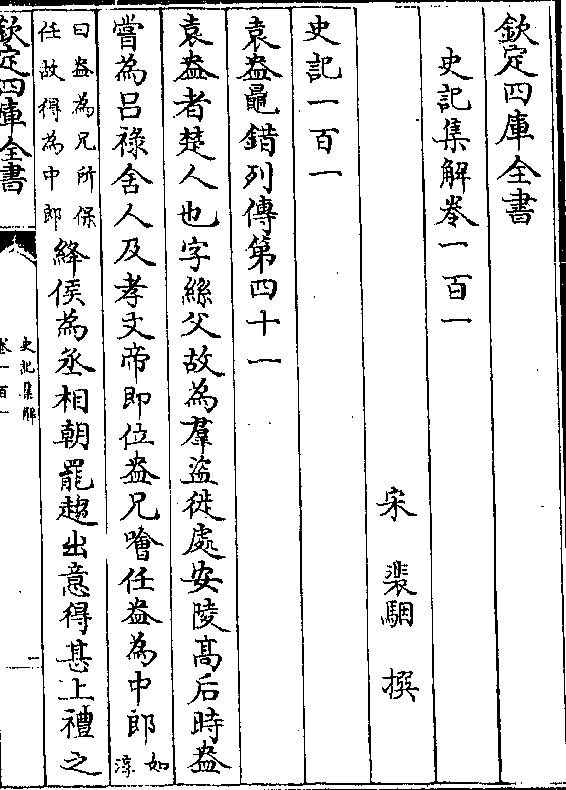 欽定四庫全書
史記集解卷一百一
宋 裴駰 撰
史記一百一
袁盎鼂錯列傳第四十一
袁盎者楚人也字絲父故為羣盗徙處安陵髙后時盎
嘗為吕祿舍人及孝文帝即位盎兄噲任盎為中郎如淳
曰盎為兄所保任故得為中郎絳侯為丞相朝罷趨出意得甚上禮之
欽定四庫全書
史記集解
卷一百一
一